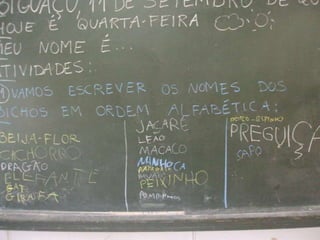 BIGUAÇU, 11 DE SETEMBRO, DE
HOJE É QUARTA-FEIRA
MEU NOME É...
ATIVIDADES:
1) VAMOS ESCREVER OS NOMES DOS
BICHOS EM ORDEM ALFABÉTICA:
BEIJA-FLOR
CACHORRO
DRAGÃO
ELEFANTE
GATO
GIRAFA
JACARÉ
LEÃO
MACACO
MINHOCA
PEIXINHO
PORCO-ESPINHO
PREGUIÇA
SAPO